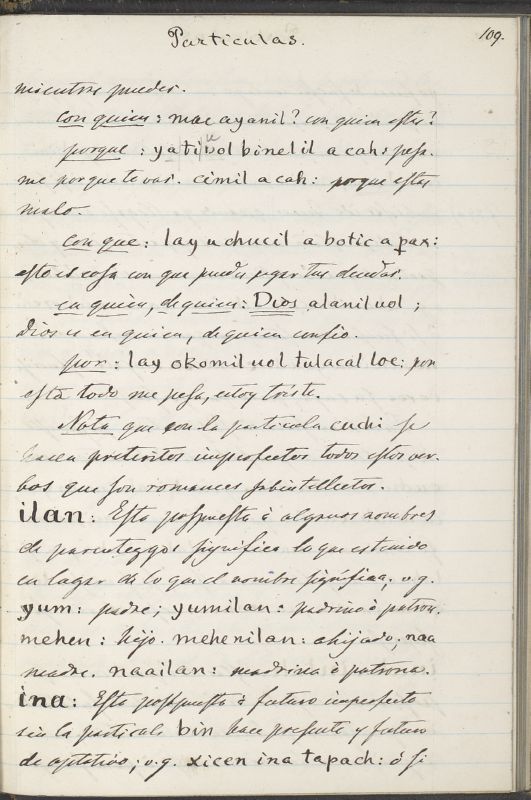 Particulas.
109.
mientras puedes.
con quien: mac ayanil? con quien estas?
porque: yatiuol binelil a cah: pesa
me porque te vas. cimil a cah: porque estas
malo.
con que: lay uchucil a botic a pax:
esto es cosa con que puedes pagar tus deudas.
en quien, de quien: Dios alanil uol;
Dios es en quien, de quien confio.
por: lay okomil uol tulacal loe: por
esta todo me pesa, estoy triste.
Nota que con la particula cuchi se
hacen preteritos imperfectos todos estos ver-
bos que son romances subintellectos.
ilan: Esta pospuesta á algunos nombres
de parentezgos significa lo que es tenido
en lugar de lo que el nombre significa; v.g.
yum: padre; yumilan: padrino ò patron.
mehen: hijo. mehenilan: ahijado; naa
madre. naailan: madrina ò patrona.
ina: Esta pospuesta á futuro imperfecto
sin la particula bin hace presente y futuro
de optativo; v.g. xicen ina tapach: ó si